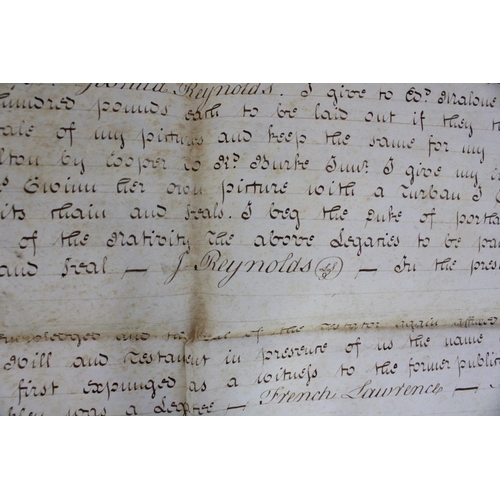 Joshua Reynolds. I give to Edd. Malone
hundred pounds each to be laid out if they t
ale of my pictures and keep the same for my
lton by Cooper to Rd. Burke Junr. I give my
Gwinn her own picture with a Turban I
its chain and seals. I beg the Duke of Portla
of the Nativity the above Legacies to be pa
and Seal — J Reynolds LS — In the pres
and the Seal of the Testator again affixed
Will and Testament in presence of us the name
first expunged as a witness to the former public
was a Legatee — French Lawrence —